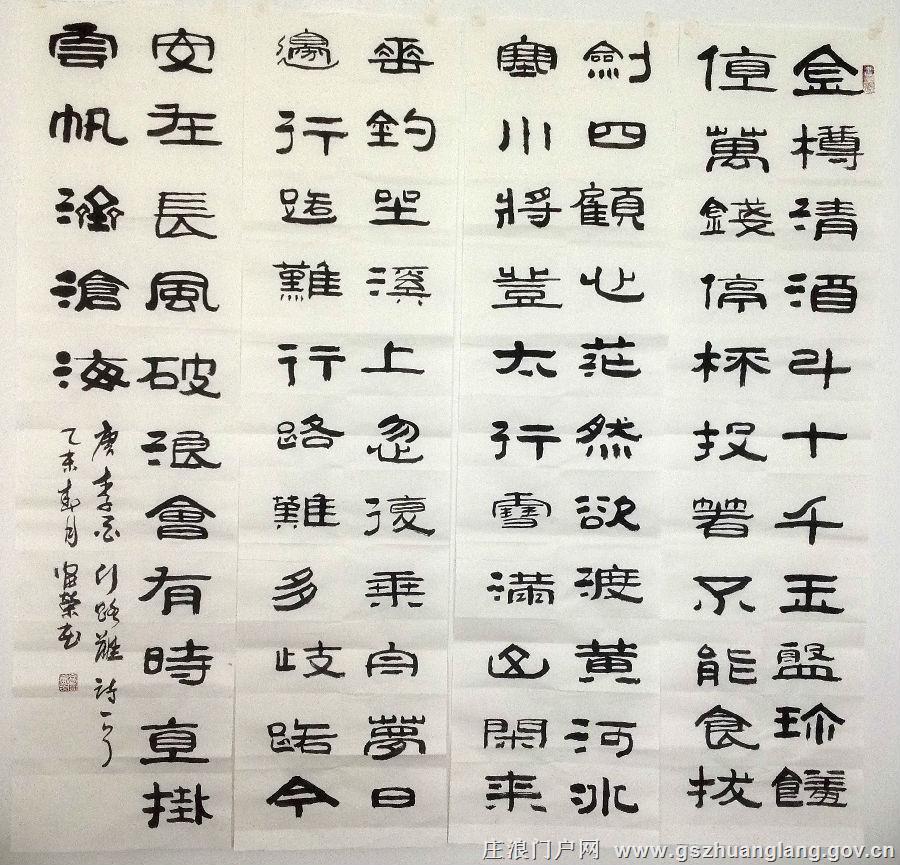 金樽清酒斗十千玉盤珍饈
值萬錢停杯投箸不能食拔
劍四顧心茫然欲渡黃河冰
塞川將登太行雪滿山閑来
垂釣坐溪上忽復乘舟夢日
邊行路難行路難多歧路今
安在長風破浪會有時直掛
雲帆濟滄海
唐李白行路難詩一首
乙未春月榮書
庄浪门户网 www.gszhuanglang.gov.cn